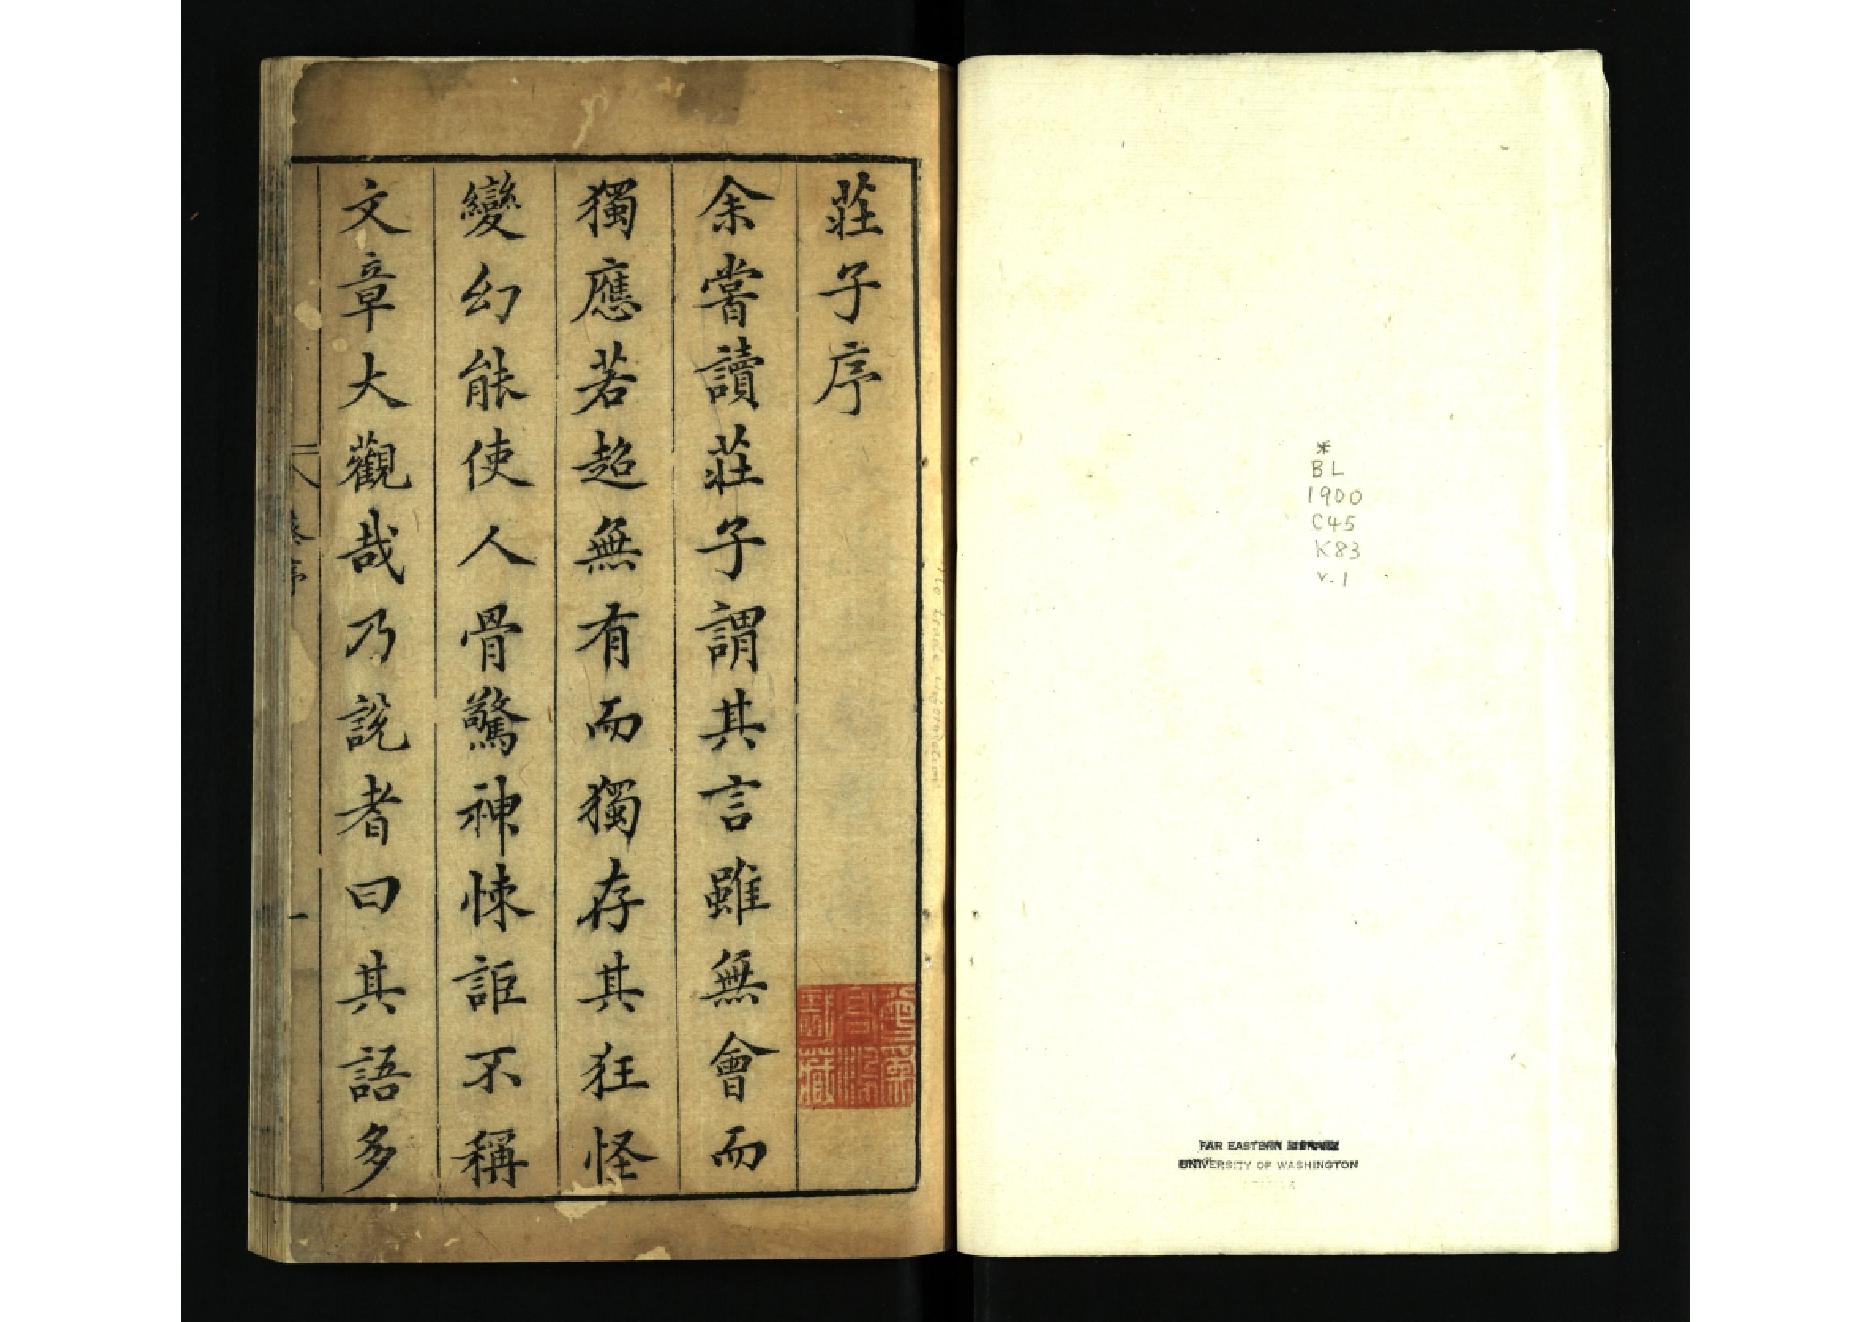 莊子序
余嘗讀莊子謂其言雖無會而
獨應若超無有而獨存其狂怪
變幻能使人骨驚神悚詎不稱
文章大觀哉乃説者曰其語多
序
一
藏
*
BL
1900
C45
K83
v.1
FAR EASTERN
UNIVERSITY OF WASHINGTON